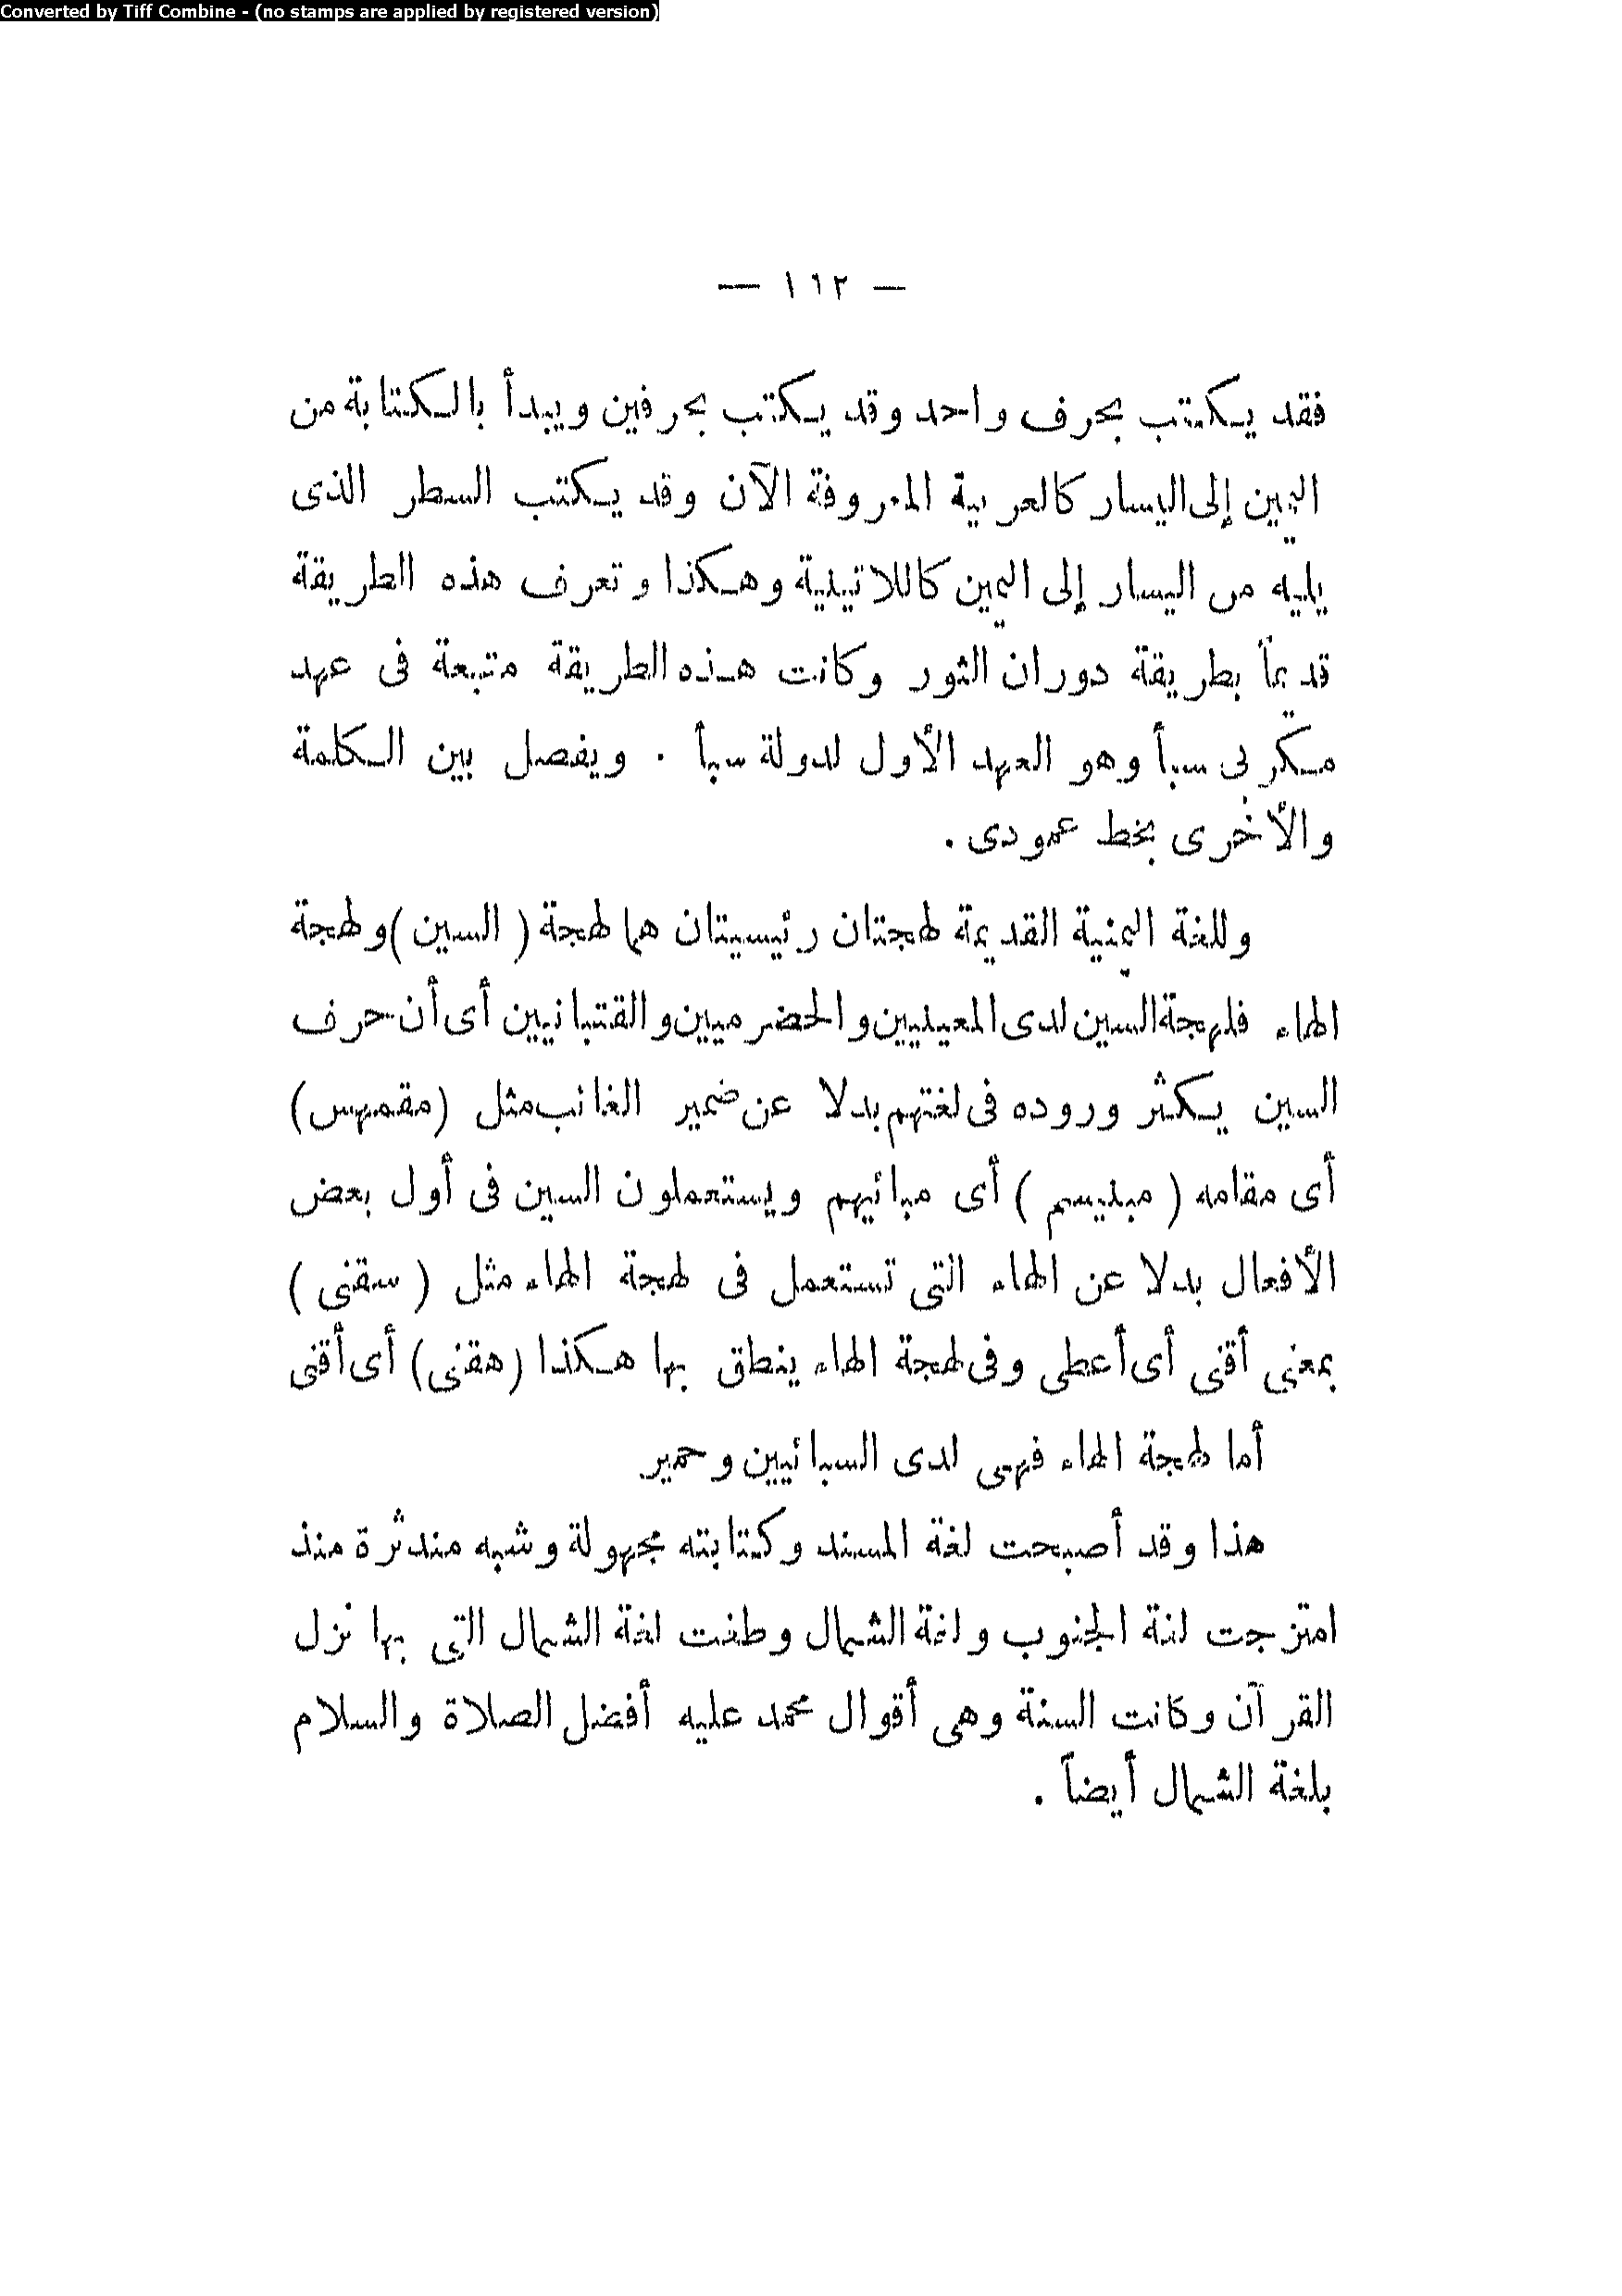 Converted by Tiff Combine - (no stamps are applied by registered version)
— ١٦٢ —
فقد يكتب بحرف واحد وقد يكتب بحرفين ويبدأ بالكتابة من
اليمين إلى اليسار كالعربية المعروفة الآن وقد يكتب السطر الذى
يليه من اليسار إلى اليمين كاللاتينية وهكذا وتعرف هذه الطريقة
قديماً بطريقة دوران الثور وكانت هذه الطريقة متبعة فى عهد
مكربى سبأ وهو العهد الأول لدولة سبأ . ويفصل بين الكلمة
والأخرى بخط عمودى .
وللغة اليمنية القديمة لهجتان رئيسيتان هما لهجة ( السين ) ولهجة
الهاء فلهجة السين لدى المعينيين والحضرميين والقتبانيين أى أن حرف
السين يكثر وروده فى لغتهم بدلا عن ضمير الغائب مثل (مقمهس)
أى مقامه ( مبنيسم ) أى مبائيهم ويستعملون السين فى أول بعض
الأفعال بدلا عن الهاء التى تستعمل فى لهجة الهاء مثل ( سقنى )
بمعنى أقنى أى أعطى وفى لهجة الهاء ينطق بها هكذا (هقنى) أى أقنى
أما لهجة الهاء فهى لدى السبائيين وحمير
هذا وقد أصبحت لغة المسند وكتابته مجهولة وشبه مندثرة منذ
امتزجت لغة الجنوب ولغة الشمال وطغت لغة الشمال التى بها نزل
القرآن وكانت السنة وهى أقوال محمد عليه أفضل الصلاة والسلام
بلغة الشمال أيضاً .